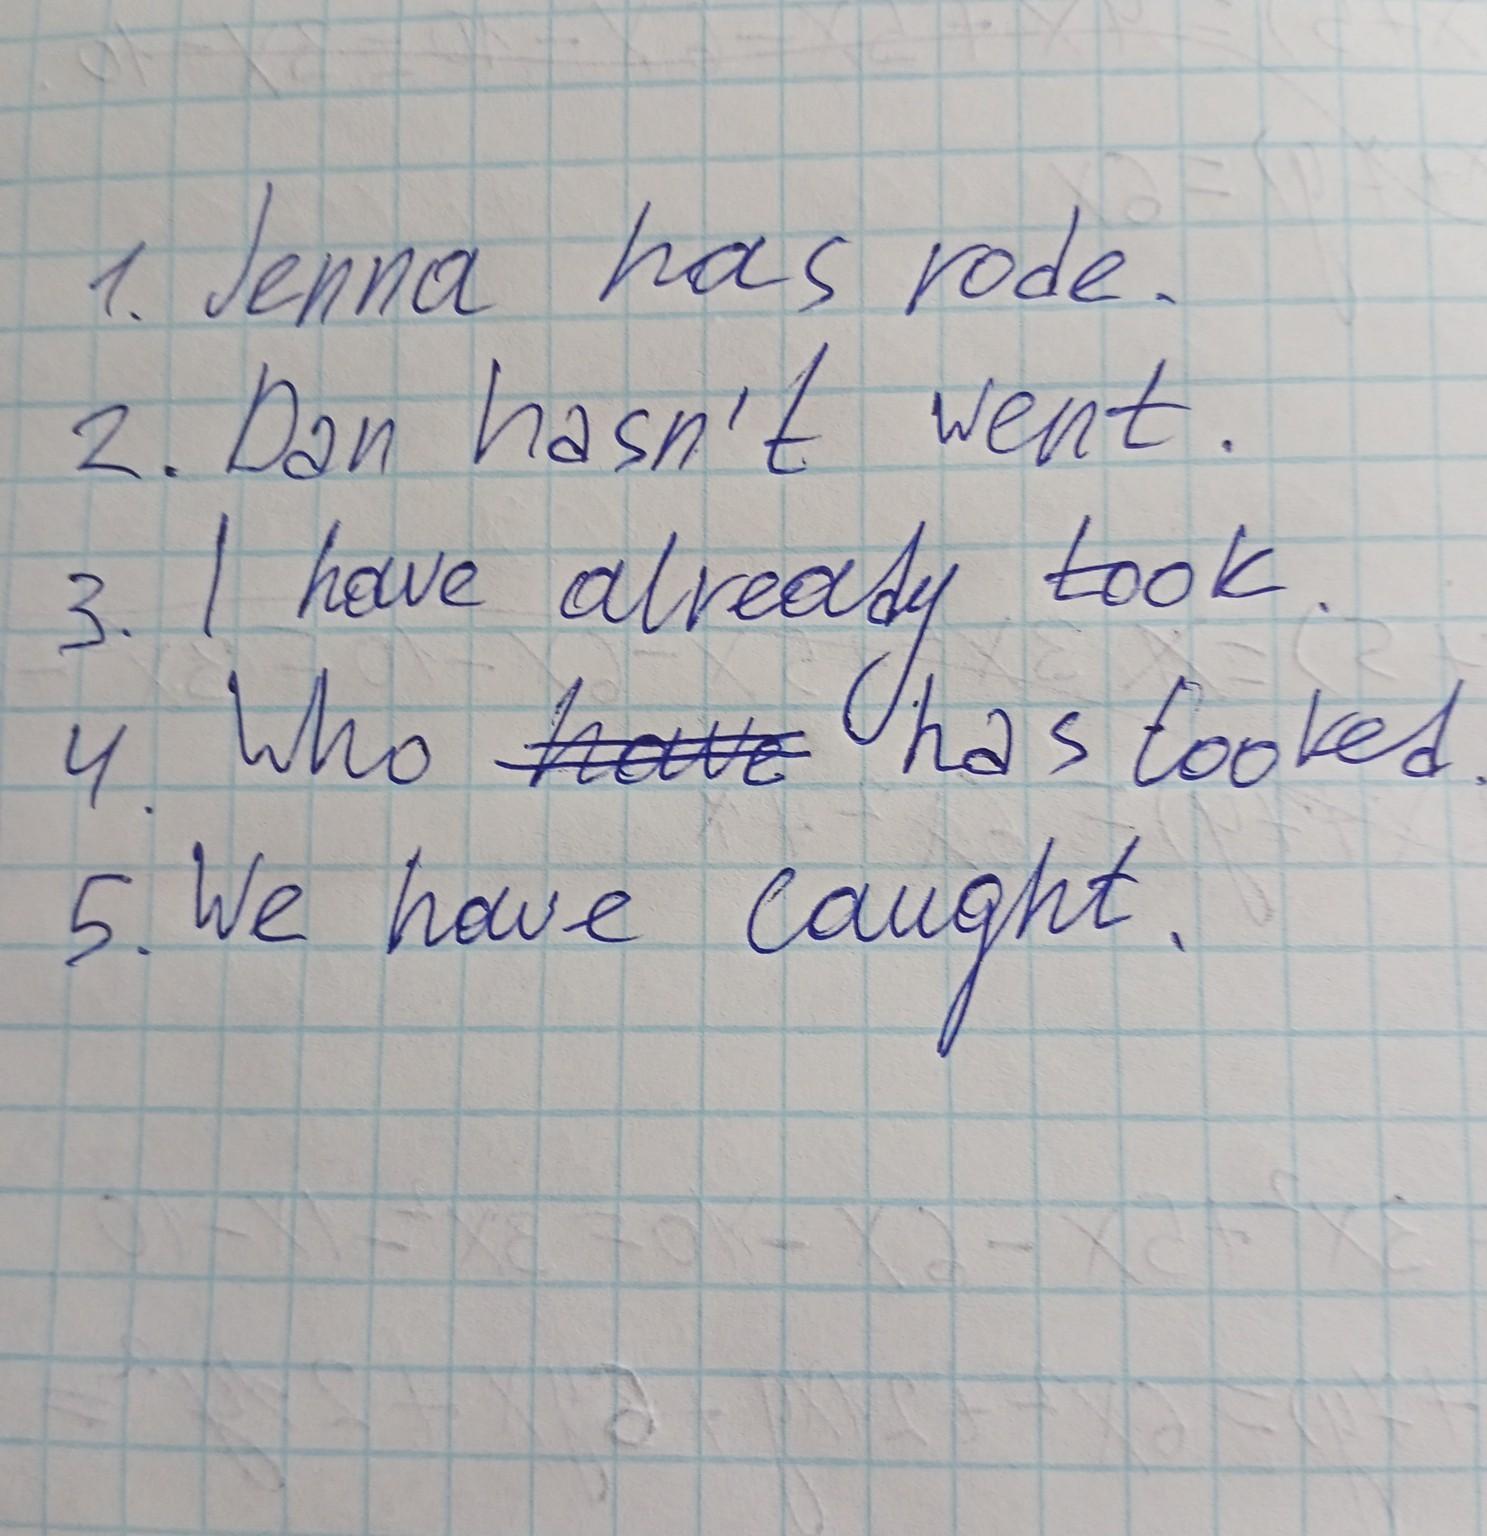 1. Jenna has rode.
2. Dan hasn't went.
3. I have already took.
4. Who has looked.
5. We have caught.